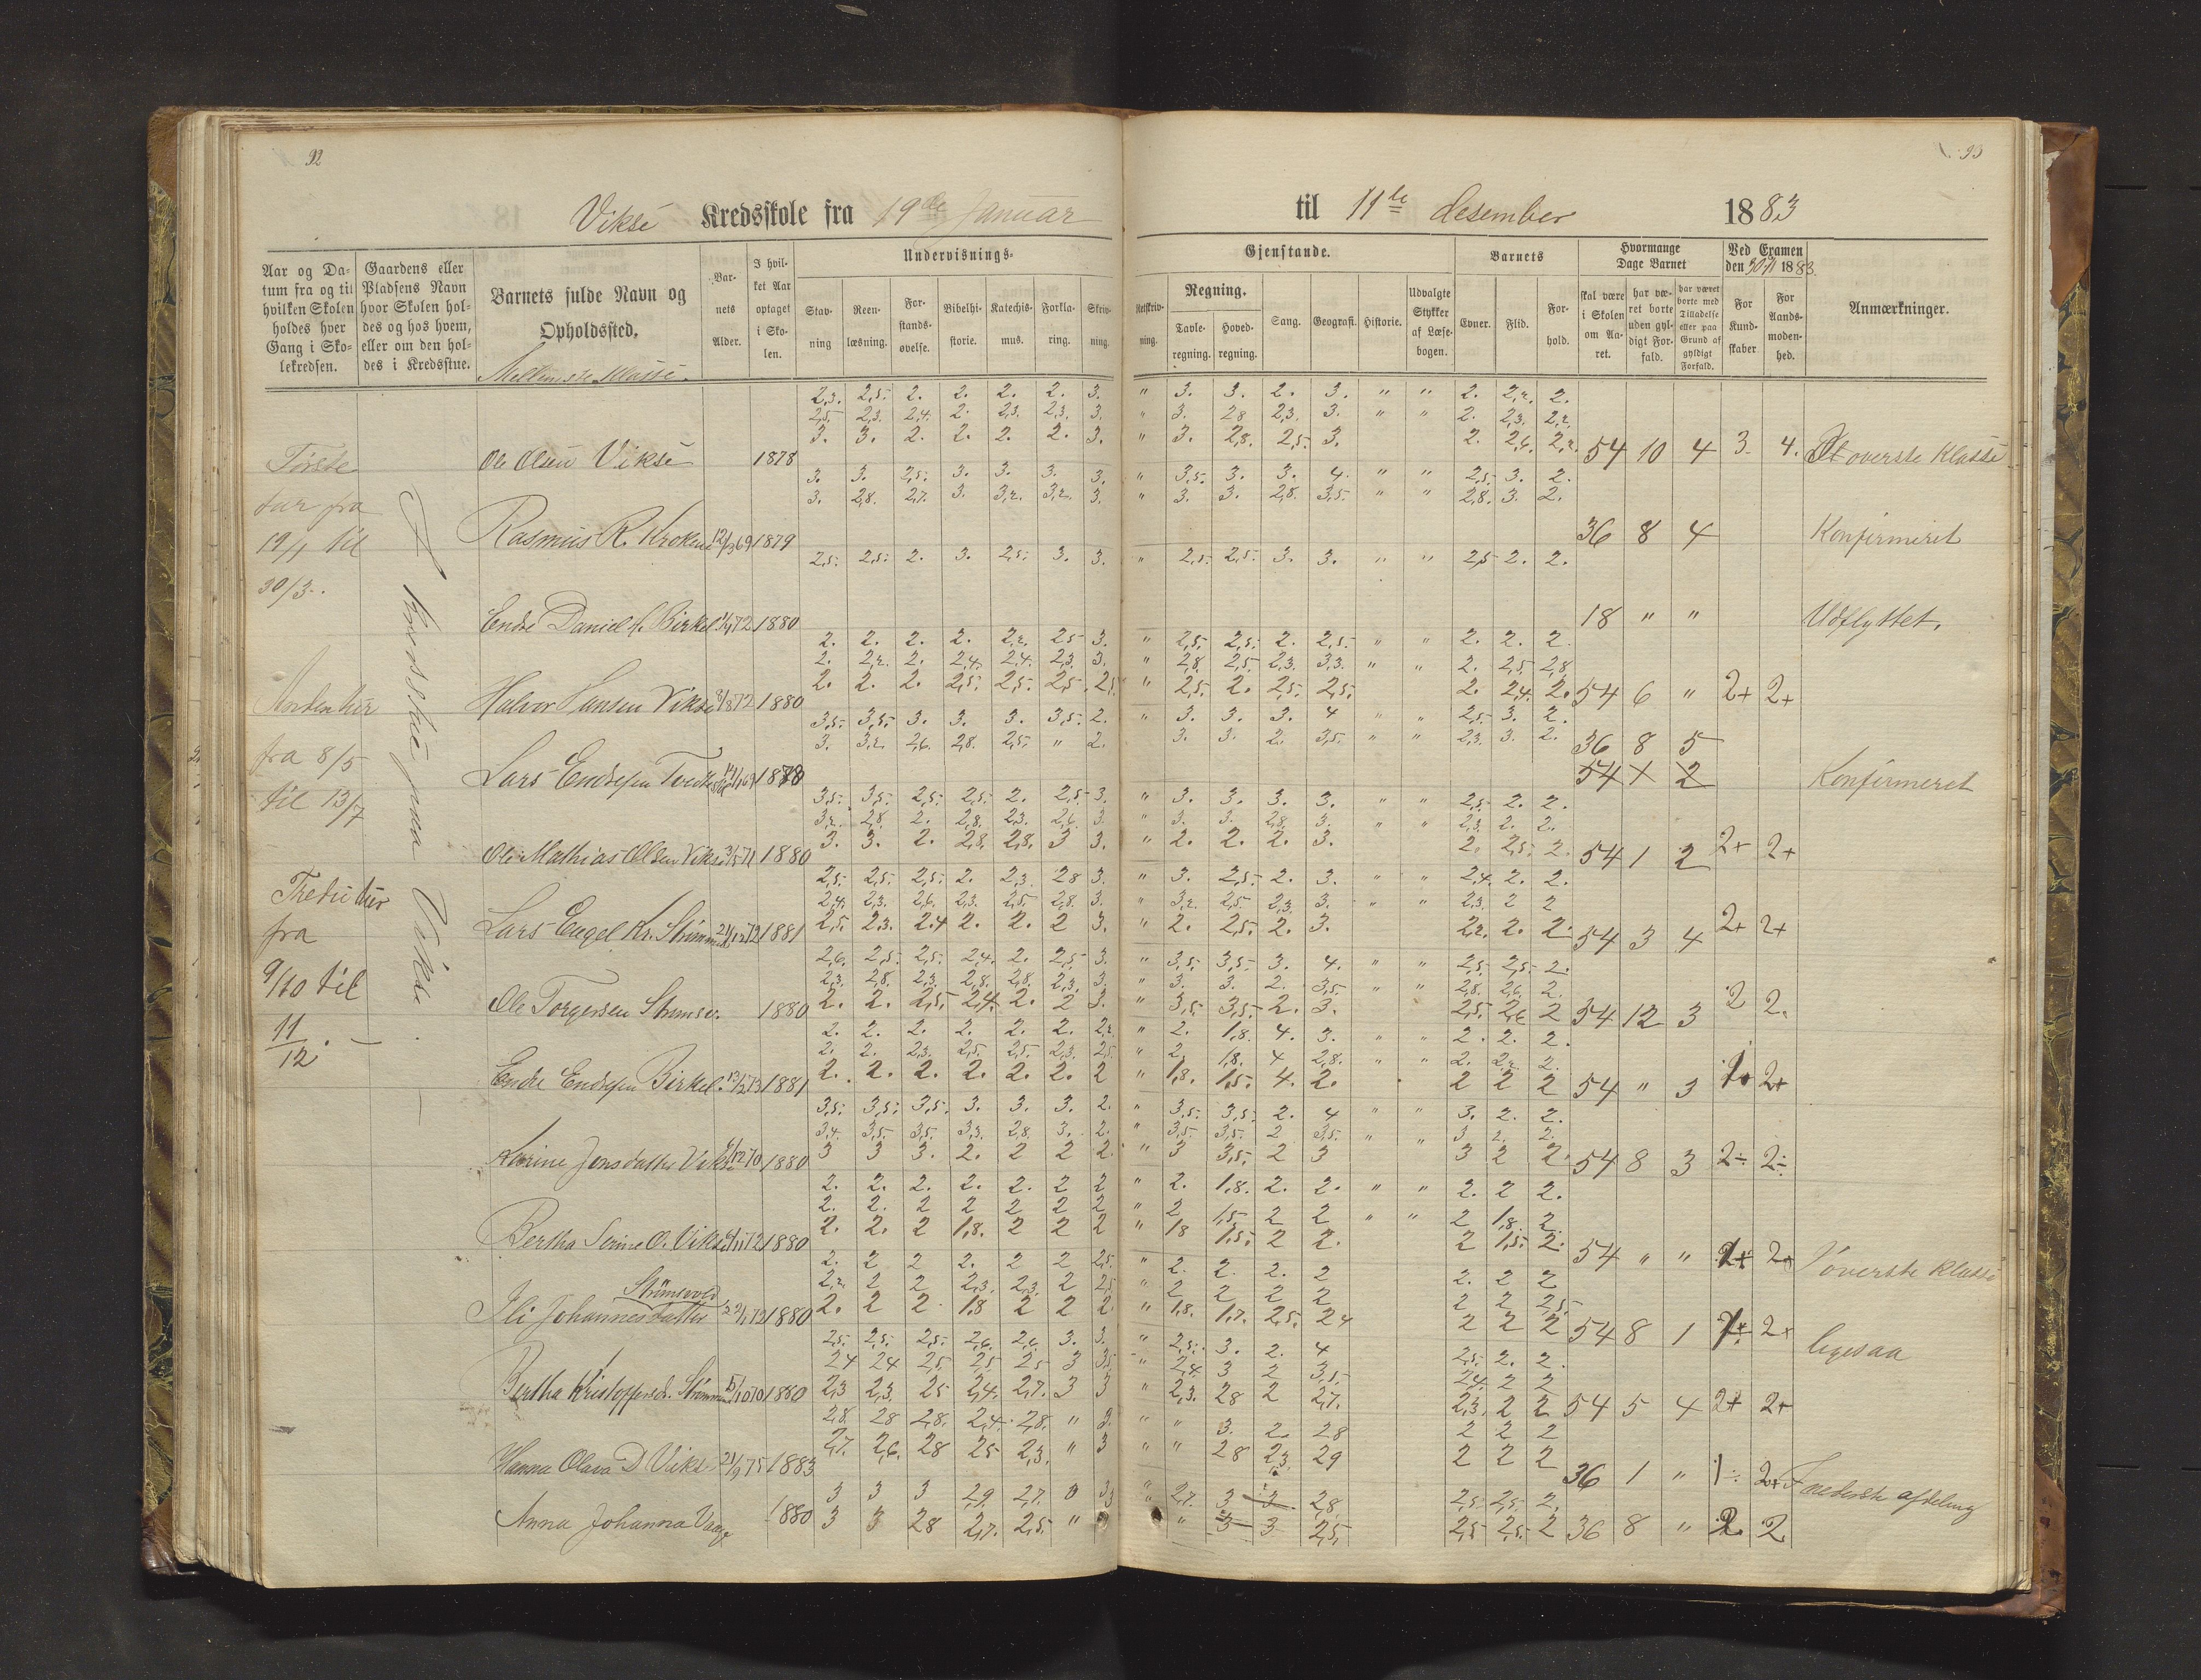 92
93
Vikse Kredsskole fra 19de Januar til 11te desember 1883
Aar og Datum fra og til hvilken Skolen holdes hver Gang i Skolekredsen.
Gaardens eller Pladsens Navn hvor Skolen holdes og hos hvem, eller om den holdes i Kredsstue.
Barnets fulde Navn og Opholdssted.
Barnets Alder.
I hvilket Aar optaget i Skolen.
Undervisnings-
Stavning
Reenlæsning.
Forstandsøvelse.
Bibelhistorie.
Katechismus.
Forklaring.
Skrivning.
Gjenstande.
Retskrivning.
Regning.
Tavleregning.
Hovedregning.
Sang.
Geografi.
Historie.
Udvalgte Stykker af Læsebogen.
Barnets
Evner.
Flid.
Forhold.
Hvormange Dage Barnet
skal være i Skolen om Aaret.
har været borte uden gyldigt Forfald.
har været borte med Tilladelse eller paa Grund af gyldigt Forfald.
Ved Examen den 30/11 1883.
For Kundskaber
For Aandsmodenhed.
Anmærkninger.
Mellemste Klasse.
Første
tur fra
19/1 til
30/3.
Anden tur
fra 8/5
til 13/7
Tredie tur
fra
9/10 til
11/12. —
I kredsstue paa Vikse.
2,3. 2,5. 2. 2. 2. 2. 3. " 3. 3. 2. 3. " " 2. 2,2. 2.
2,5 2,3. 2,4. 2. 2,3. 2,3. 3. " 3. 2,8 2,3. 3. " " 2. 2,3. 2,2.
3. 3. 2. 2. 2. 2. 3. " 3. 2,8. 2,5. 3. 2. 2,6. 2,2.
Ole Olsen Vikse 1878 54 10 4 3. 4. overste Klasse
3. 3. 2,5. 3. 3. 3. 3. " 3,5. 3. 3. 4. " " 2,5. 3. 2.
3. 2,8. 2,7. 3. 3,2. 3,2. 3. " 3. 3. 2,8. 3,5. " " 2,8. 3. 2.
Rasmus R. Kroken 12/3 69 1879 36 8 4 Konfirmeret
2,5. 2,5. 2. 3. 2,5. 3. 3. " 2,5. 2,5. 3. 3. " " 2,5 2. 2.
Endre Daniel J. Birkel. 72 1880 18 " " Udflyttet.
2. 2. 2. 2. 2,2. 2,5 3. " 2,5. 2,5. 2. 2,5. " " 2. 2. 2.
2. 2,2. 2. 2,4. 2,4. 2,3. 3. " 2,8. 2,5. 2,3. 3,3. " " 2. 2,5 2,8
2. 2. 2. 2,5. 2,5. 2,5. 2,5. " 2,5. 2. 2,5. 2,5. 2. 2,4. 2.
Halvor Hansen Vikse 8/8 72 1880 54 6 " 2+ 2+
3,5. 3,5. 3. 3. 3. 3,5. 2. " 3. 3. 3. 4 " " 2,5. 3. 2.
3. 3,2. 2,6. 2,8. 2,5. " 2. 3. 3. 2. 3,5. " " 2,3. 3. 2.
36 8 5
Lars Endresen 1878 54 2 Konfirmeret
3,5. 3,5. 2,5. 2,5. 2. 2,5 3. " 3. 3. 3. 3. " " 2,5. 2. 2.
3,2. 2,8. 2. 2,8. 2,3. 2,6. 3. " 3. 3. 2,8. 3. " " 2,3. 2. 2.
3. 3. 2. 2,8. 2,8. 3 3. " 2. 2. 2. 3. 2. 2,5. 2.
Ole Mathias Olsen Vikse 3/5 71 1880 54 1 2 2+ 2+
2,5. 2,5. 2,5. 2. 2,3. 2,8 3. " 3. 2,5. 2. 3. " " 2,4. 2. 2.
2,4. 2,3. 2,6. 2,3. 2,5. 2,8. 3. " 3,2. 2,5 2,3. 3. " " 2,3. 2 2
2,5. 2,3. 2,4 2. 2. 2 3. " 2. 2,5. 2. 3. 2,2. 2. 2.
Lars Engel Kr. 21/12 72 1881 54 3 4 2+ 2+
2,6. 2,5. 2,5. 2,4. 2. 2,5 3. " 3,5. 3,5. 3. 4. " " 2,5. 2,5. 2.
2,3. 2,8. 2,3. 2,8. 2,8. 2,3. 3. " 3. 3. 2. 3,5. " " 2,8. 2,6. 2.
2. 2. 2,5. 2,4. 2. 2 3. " 3,5. 3,5. 2. 3. 2,5. 2,6 2
Ole Torgersen 1880 54 12 3 2 2.
2. 2. 2. 2. 2. 2. 2,2. " 2. 1,8. 4. 3. " " 2. 2. 2.
2. 2. 2,3. 2,5. 2,5. 2,3. 2,5. " 2 1,8. 4 2,8. " " 2. 2,2. 2.
2. 2. 2. 2. 2. 2. 2 " 1,8. 1,5. 4. 2. 2 2 2
Endre Endresen Birkel. 73 1881 54 " 3 2+
3,5. 3,5. 3,5. 3. 3. 3. 2. " 3,5. 3,5. 2. 4 " " 3. 2. 2.
3,4. 3,5. 3,5. 3,3. 2,8. 3. 2. " 3,5. 3,5. 2 3,5. " " 3 2. 2.
3 3 3. 2. 2 2 2. " 3 3,5. 2 3 3 2 2.
Karine Jonsdatter Vikse 70 1880 54 8 3 2÷ 2÷
2. 2. 2. 2. 2. 2 2 " 2. 1,8. 2. 2. " " 2. 2 2.
2. 2. 2 2 2 2 2 " 2 1,5 2 2 " " 2 1,8. 2.
2. 2. 2 1,8. 2 2 2 " 1,8 1,5. 2 2. 2 1,5. 2.
Bertha Serine O. Vikse 72 1880 54 " " 2+ I overste Klasse
2. 2 2 2. 2 2 2,5. " 2. 2. 2. 2 2. 2 2
2,2. 2 2 2,3. 2,3. 2 2,5 " 2 2 2 2 2 2 2,5.
2. 2 2. 1,8 2 2 2. " 1,8. 1,7. 2,5. 2,4 2 2 2
Ili Johannesdatter 72 1880 54 8 1 2+ ligesaa
2,5. 2,5. 2,5. 2,6. 2,6. 3. 3. " 2,5. 3. 2. 4 2,5. 2. 2.
2,4 2,4 2,5. 2,5. 2,5 3 3,5. " 2,4. 3 2 3,5. 2,4. 2 2
2,3 2,3. 2,5 2,4. 2,7. 3 3 " 2,3. 2,8 2 2,7. 2,3. 2 2
Bertha Kristoffersd. 5/10 70 1880 54 5 4 2+ 2+
2,8. 2,8 2,8. 2,4. 2,8. " 3. " " 3. 2. 2,8 2 2 2
2,7. 2,6. 2,8 2,5 2,3. " 3 " " 2,8 2,3. 2,9 2 2 2
Hanna Olava D Vikse 21/9 75 1883 36 1 " 1÷ 2+ I nederste afdeling
3 3 3 2,9. 2,7. 0 3,3 " 2,7. 3 3. 2,8. 2,5. 2,5. 2.
Anna Johanna Vaage 1880 3 3 2,8 2,7. 2,5. " " 3 3 2,5. 2,5 2,5. 2 36 8 " 2. 2